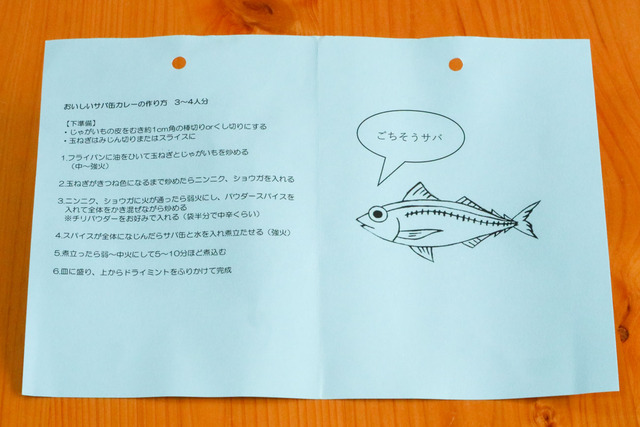 おいしいサバ缶カレーの作り方　3～4人分
【下準備】
・じゃがいもの皮をむき約1cm角の棒切りorくし切りにする
・玉ねぎはみじん切りまたはスライスに
1.フライパンに油をひいて玉ねぎとじゃがいもを炒める
（中～強火）
2.玉ねぎがきつね色になるまで炒めたらニンニク、ショウガを入れる
3.ニンニク、ショウガに火が通ったら弱火にし、パウダースパイスを
入れて全体をかき混ぜながら炒める
※チリパウダーをお好みで入れる（袋半分で中辛くらい）
4.スパイスが全体になじんだらサバ缶と水を入れ煮立たせる（強火）
5.煮立ったら弱～中火にして5～10分ほど煮込む
6.皿に盛り、上からドライミントをふりかけて完成
ごちそうサバ